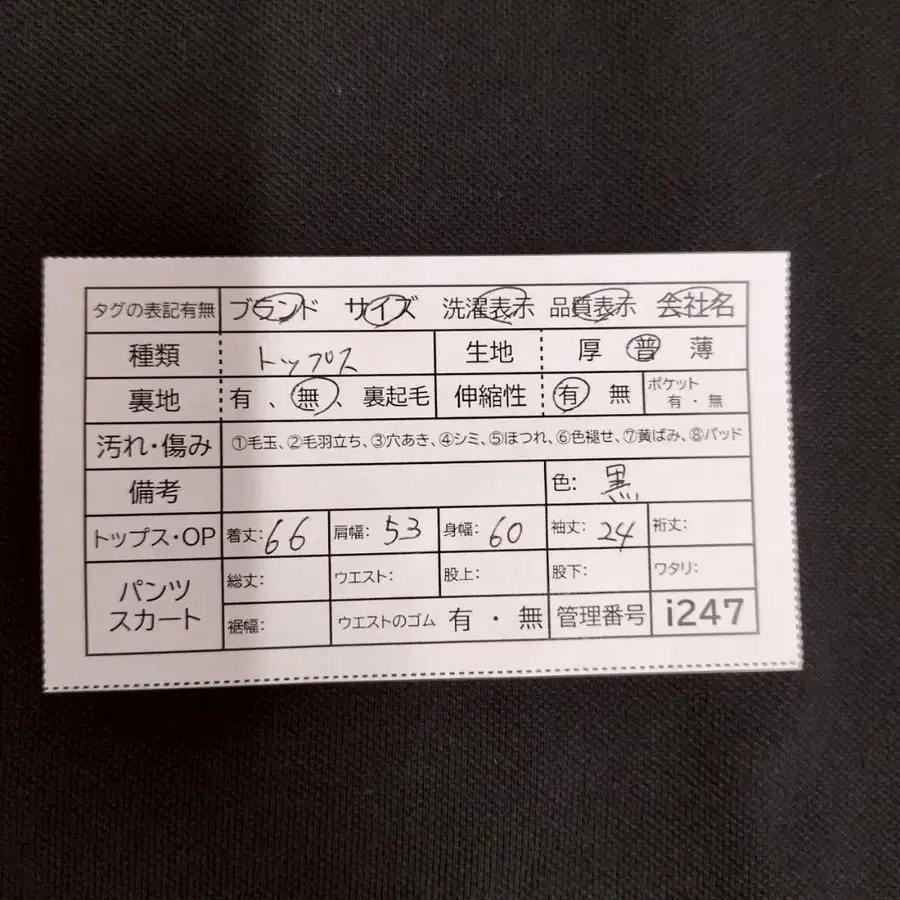 タグの表記有無 ブランド サイズ 洗濯表示 品質表示 会社名
種類 トップス 生地 厚 普 薄
裏地 有 、 無 、 裏起毛 伸縮性 有 無 ポケット 有 ・ 無
汚れ・傷み ①毛玉、②毛羽立ち、③穴あき、④シミ、⑤ほつれ、⑥色褪せ、⑦黄ばみ、⑧パッド
備考 色: 黒
トップス・OP 着丈: 66 肩幅: 53 身幅: 60 袖丈: 24 裄丈:
パンツ スカート 総丈: ウエスト: 股上: 股下: ワタリ:
裾幅: ウエストのゴム 有 ・ 無 管理番号 i247